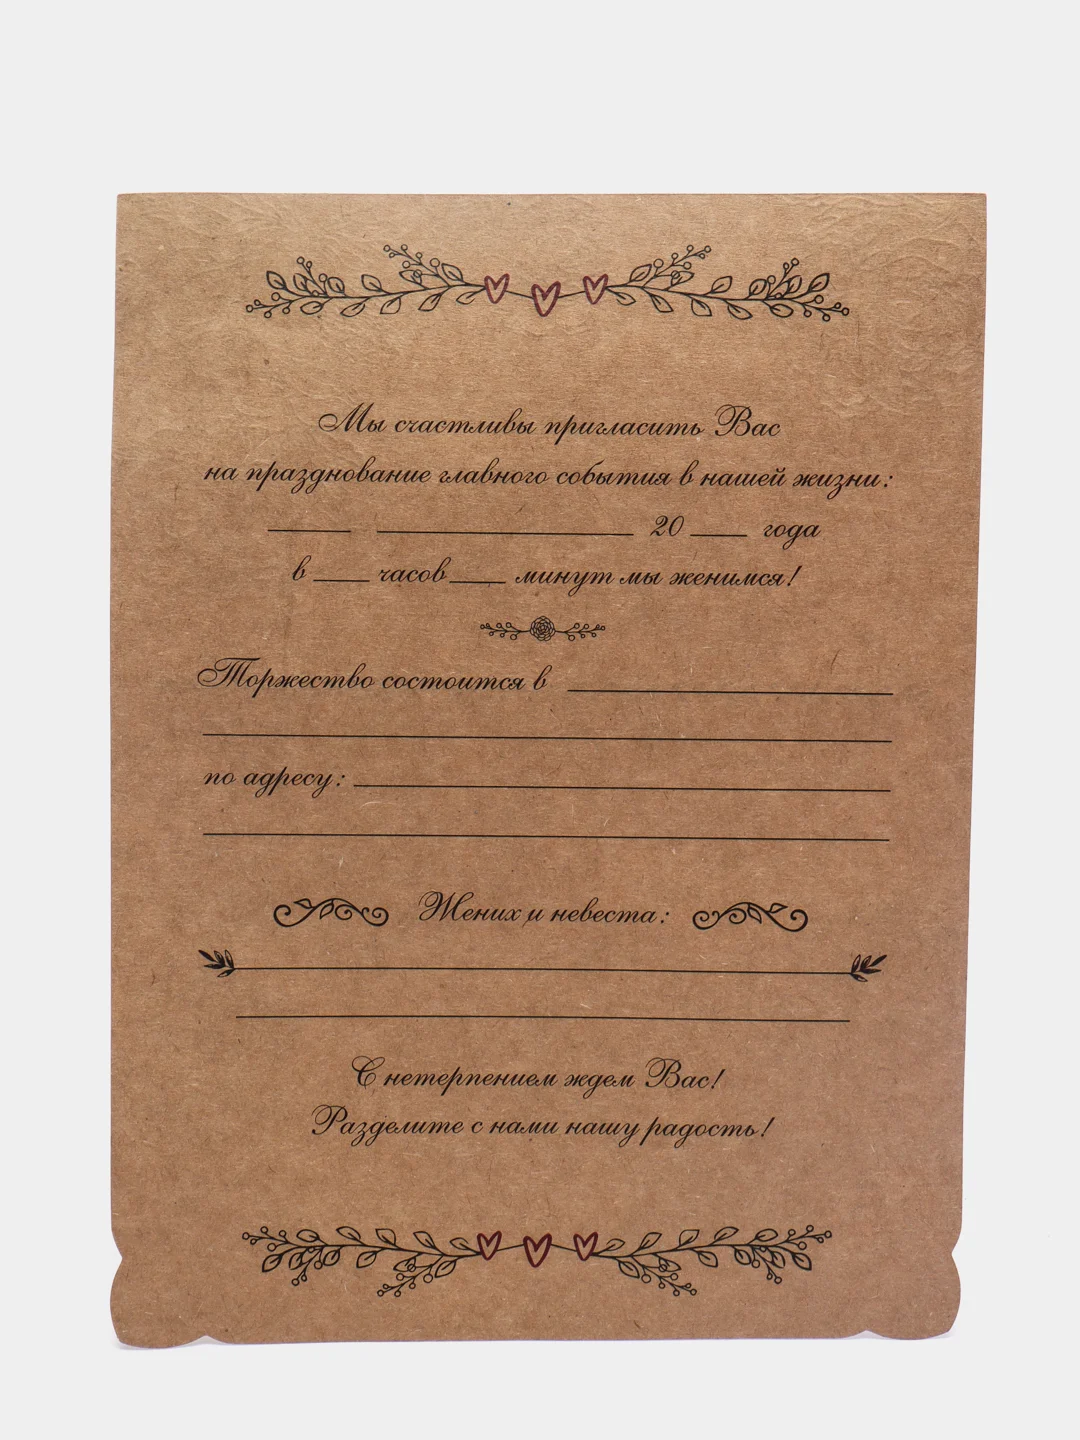 Мы счастливы пригласить Вас
на празднование главного события в нашей жизни:
____ ____________ 20 ___ года
в ___ часов ___ минут мы женимся!
Торжество состоится в ________________
__________________________________
по адресу: __________________________
__________________________________
Жених и невеста:
______________________________
______________________________
С нетерпением ждем Вас!
Разделите с нами нашу радость!